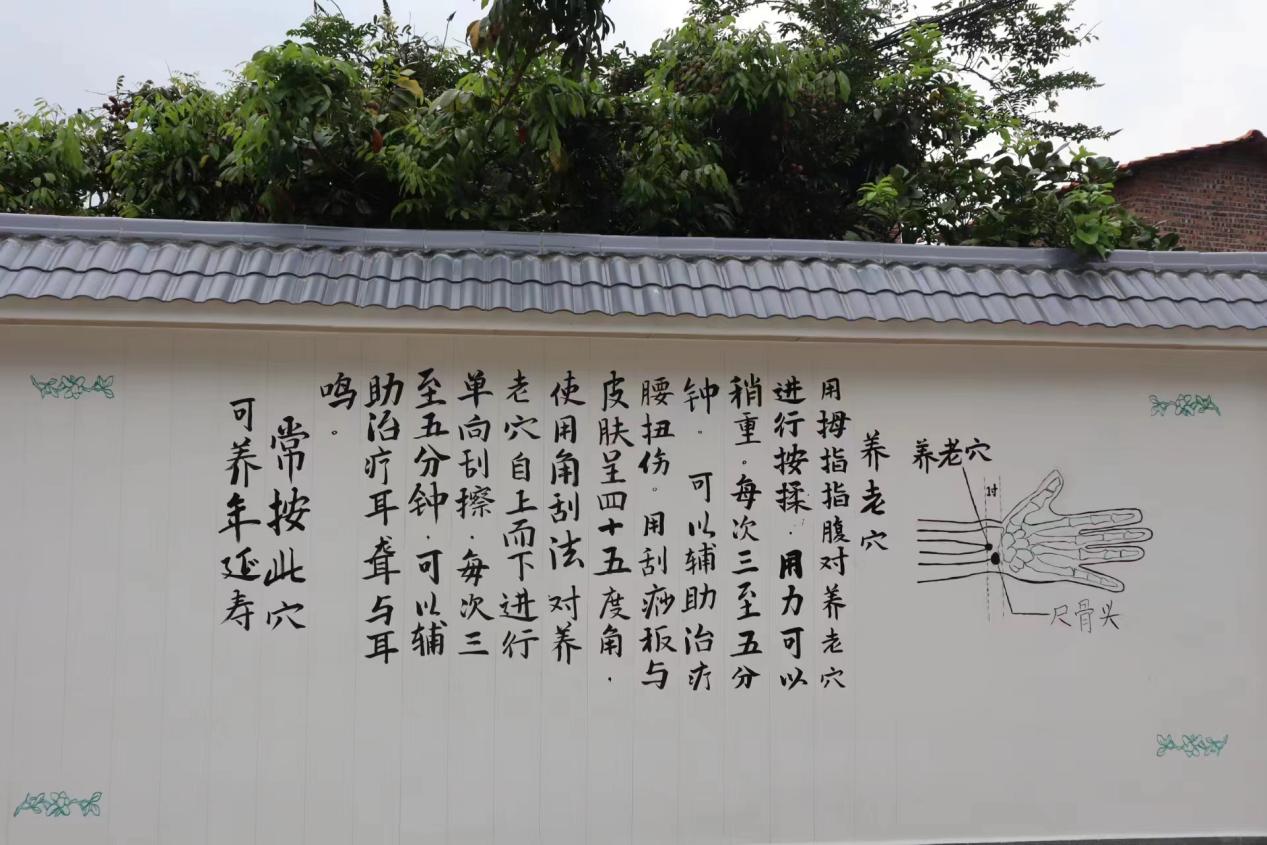 养老穴
用拇指指腹对养老穴
进行按揉.用力可以
稍重。每次三至五分
钟。可以辅助治疗
腰扭伤。用刮痧板与
皮肤呈四十五度角.
使用角刮法对养
老穴自上而下进行
单向刮擦.每次三
至五分钟.可以辅
助治疗耳聋与耳
鸣。
常按此穴
可养年延寿
养老穴
1寸
尺骨头